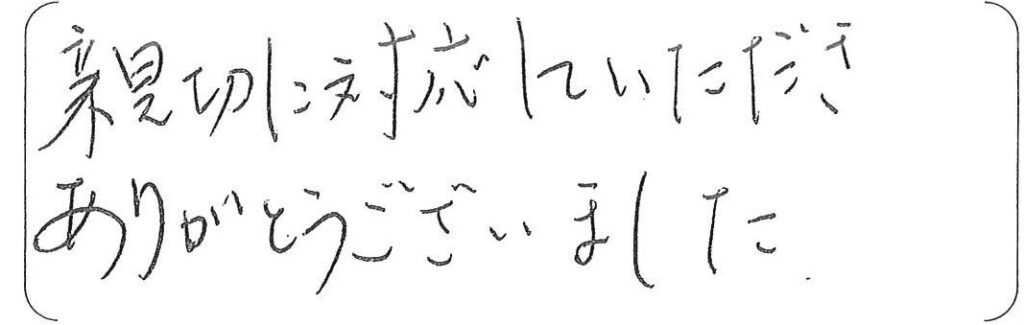 親切に対応していただき
ありがとうございました.